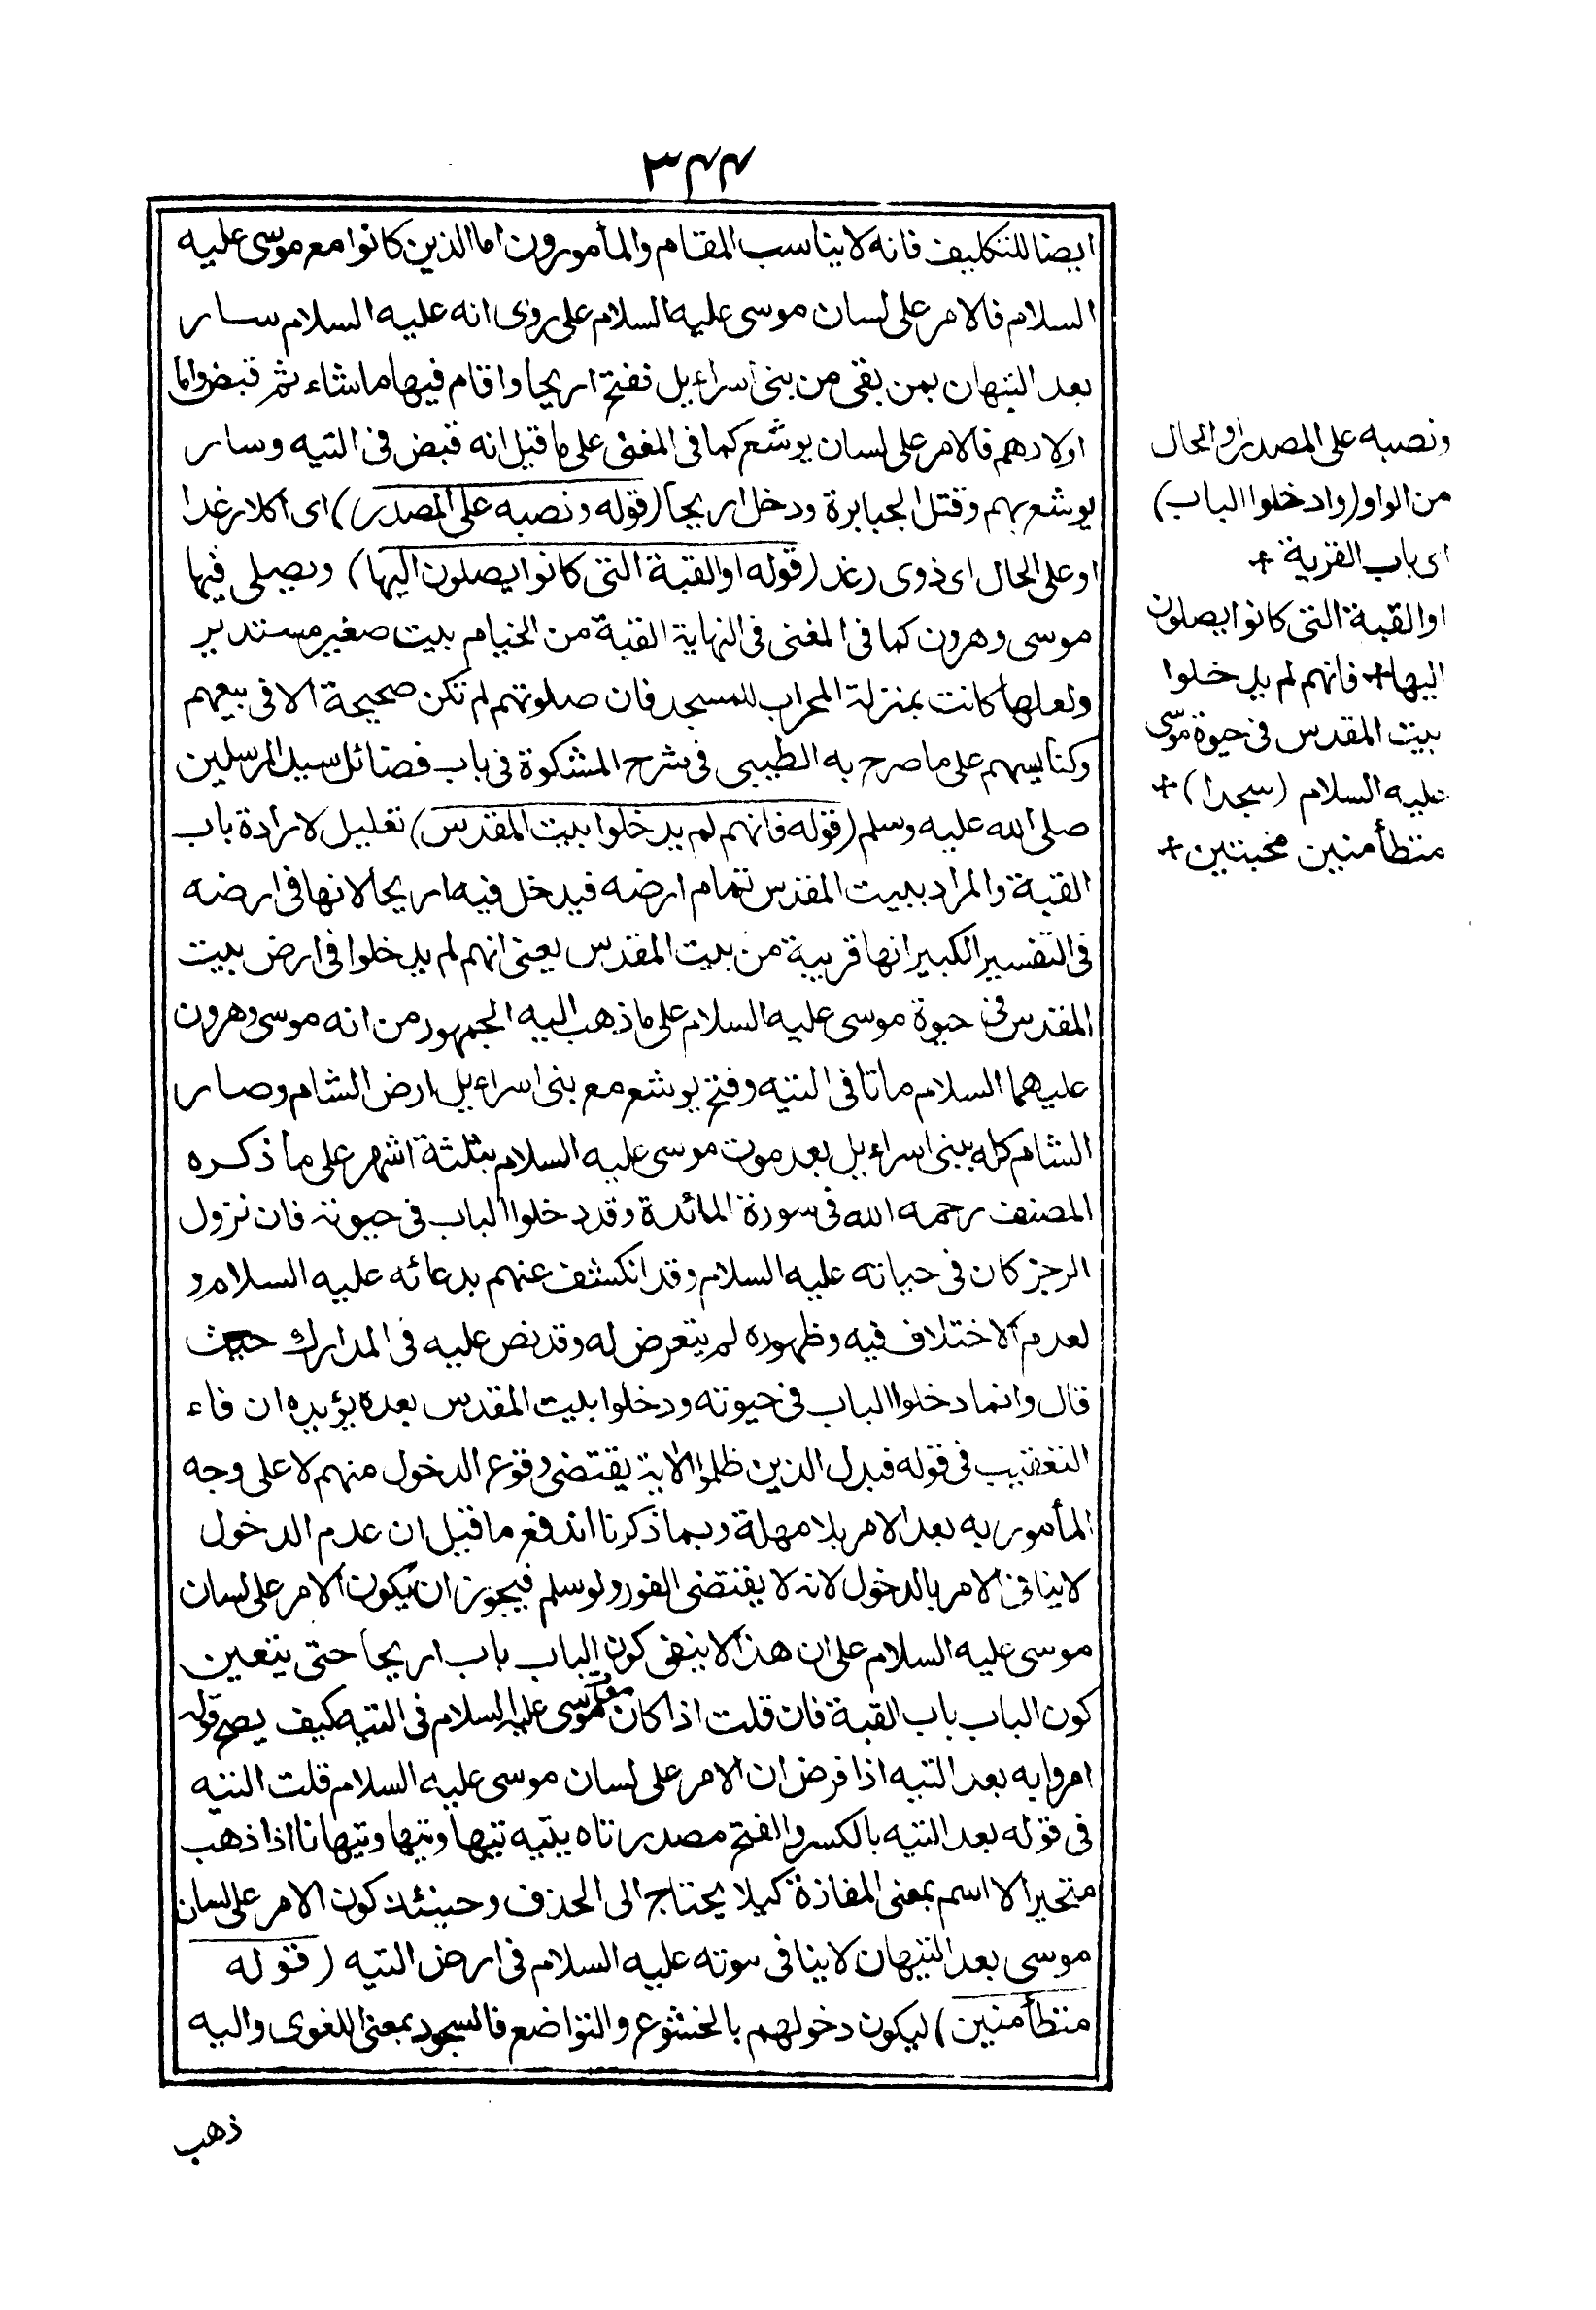 ٣٤٤
ايضا للتكليف فانه لا يناسب المقام والمأمورون اما الذين كانوا مع موسى عليه
السلام فالامر على لسان موسى عليه السلام على روى انه عليه السلام سار
بعد التيهان بمن بقى من بنى اسراءيل ففتح اريحا واقام فيها ما شاء ثم قبض واما
اولادهم فالامر على لسان يوشع كما فى المغنى على ما قيل انه قبض فى التيه وسار
يوشع بهم وقتل الجبابرة ودخل اريحا (قوله ونصبه على المصدر) اى اكلا رغدا
او على الحال اى ذوى رغد (قوله او القبة التى كانوا يصلون اليها) ويصلى فيها
موسى وهرون كما فى المغنى فى النهاية القبة من الخيام بيت صغير مستدير
ولعلها كانت بمنزلة المحراب للمسجد فان صلوتهم لم تكن صحيحة الا فى بيعهم
وكنايسهم على ما صرح به الطيبى فى شرح المشكوة فى باب فضائل سيد المرسلين
صلى الله عليه وسلم (قوله فانهم لم يدخلوا بيت المقدس) تعليل لارادة باب
القبة والمراد ببيت المقدس تمام ارضه فيدخل فيه اريحا لانها فى ارضه
فى التفسير الكبير انها قريبة من بيت المقدس يعنى انهم لم يدخلوا فى ارض بيت
المقدس فى حيوة موسى عليه السلام على ما ذهب اليه الجمهور من انه موسى وهرون
عليهما السلام ماتا فى التيه وفتح يوشع مع بنى اسراءيل ارض الشام وصار
الشام كله ببنى اسراءيل بعد موت موسى عليه السلام بثلثة اشهر على ما ذكره
المصنف رحمه الله فى سورة المائدة وقد دخلوا الباب فى حيوته فان نزول
الرجز كان فى حياته عليه السلام وقد انكشف عنهم بدعائه عليه السلام و
لعدم الاختلاف فيه وظهوره لم يتعرض له وقد نص عليه فى المدارك حيث
قال وانما دخلوا الباب فى حيوته ودخلوا بيت المقدس بعده يؤيده ان فاء
التعقيب فى قوله فبدل الذين ظلموا الاية يقتضى وقوع الدخول منهم لا على وجه
المأمور به بعد الامر بلا مهلة وبما ذكرنا اندفع ما قيل ان عدم الدخول
لا ينافى الامر بالدخول لانه لا يقتضى الفور ولو سلم فيجوز ان يكون الامر على لسان
موسى عليه السلام على ان هذا لا ينفى كون الباب باب اريحا حتى يتعين
كون الباب باب القبة فان قلت اذا كان موسى عليه السلام فى التيه كيف يصح قوله
امروا به بعد التيه اذا فرض ان الامر على لسان موسى عليه السلام قلت التيه
فى قوله بعد التيه بالكسر والفتح مصدر تاه يتيه تيها وتيها وتيهانا اذا ذهب
متحيرا لا اسم بمعنى المفازة كيلا يحتاج الى الحذف وحينئذ كون الامر على لسان
موسى بعد التيهان لا ينافى موته عليه السلام فى ارض التيه (قوله
متطأمنين) ليكون دخولهم بالخشوع والتواضع فالسجود بمعنى اللغوى واليه
ذهب
ونصبه على المصدر او الحال
من الواو (وادخلوا الباب)
اى باب القرية +
او القبة التى كانوا يصلون
اليها + فانهم لم يدخلوا
بيت المقدس فى حيوة موسى
عليه السلام (سجدا) +
متطأمنين مخبتين +